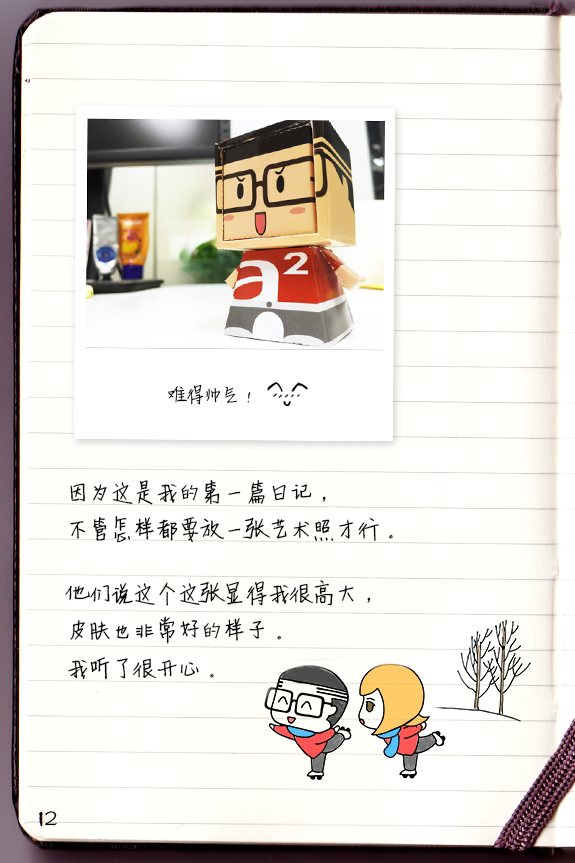 a²
难得帅气！
因为这是我的第一篇日记，
不管怎样都要放一张艺术照才行。
他们说这个这张显得我很高大，
皮肤也非常好的样子。
我听了很开心。
12